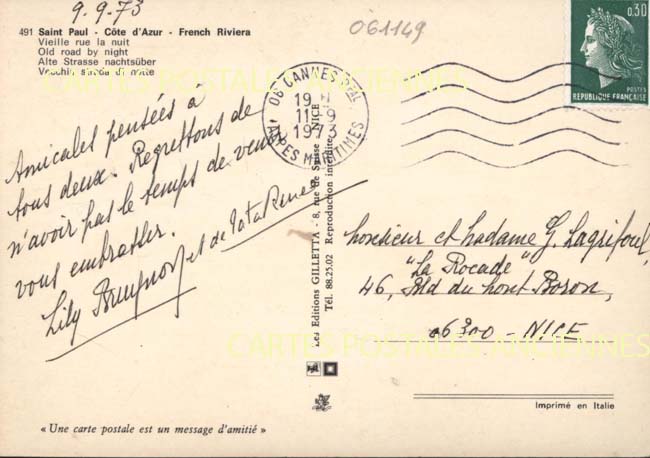 9-9-73
061149
491 Saint Paul - Côte d'Azur - French Riviera
Vieille rue la nuit
Old road by night
Alte Strasse nachtsüber
Vecchia strada di notte
CARTES POSTALES ANCIENNES
0,30
POSTES
REPUBLIQUE FRANÇAISE
06 CANNES PPAL
19 H
11-9
1973
ALPES MARITIMES
Amicales pensées à
tous deux. Regrettons de
n'avoir pas le temps de venir
vous embrasser.
Lily et de Tata
Les Editions GILLETTA - 8, rue de Suisse - NICE
Tél. 88.25.02 Reproduction interdite
Monsieur et Madame G. Lagrifoul,
"La Rocade"
46, Bld du Mont Boron,
06300 - NICE
CARTES POSTALES ANCIENNES
Imprimé en Italie
« Une carte postale est un message d'amitié »